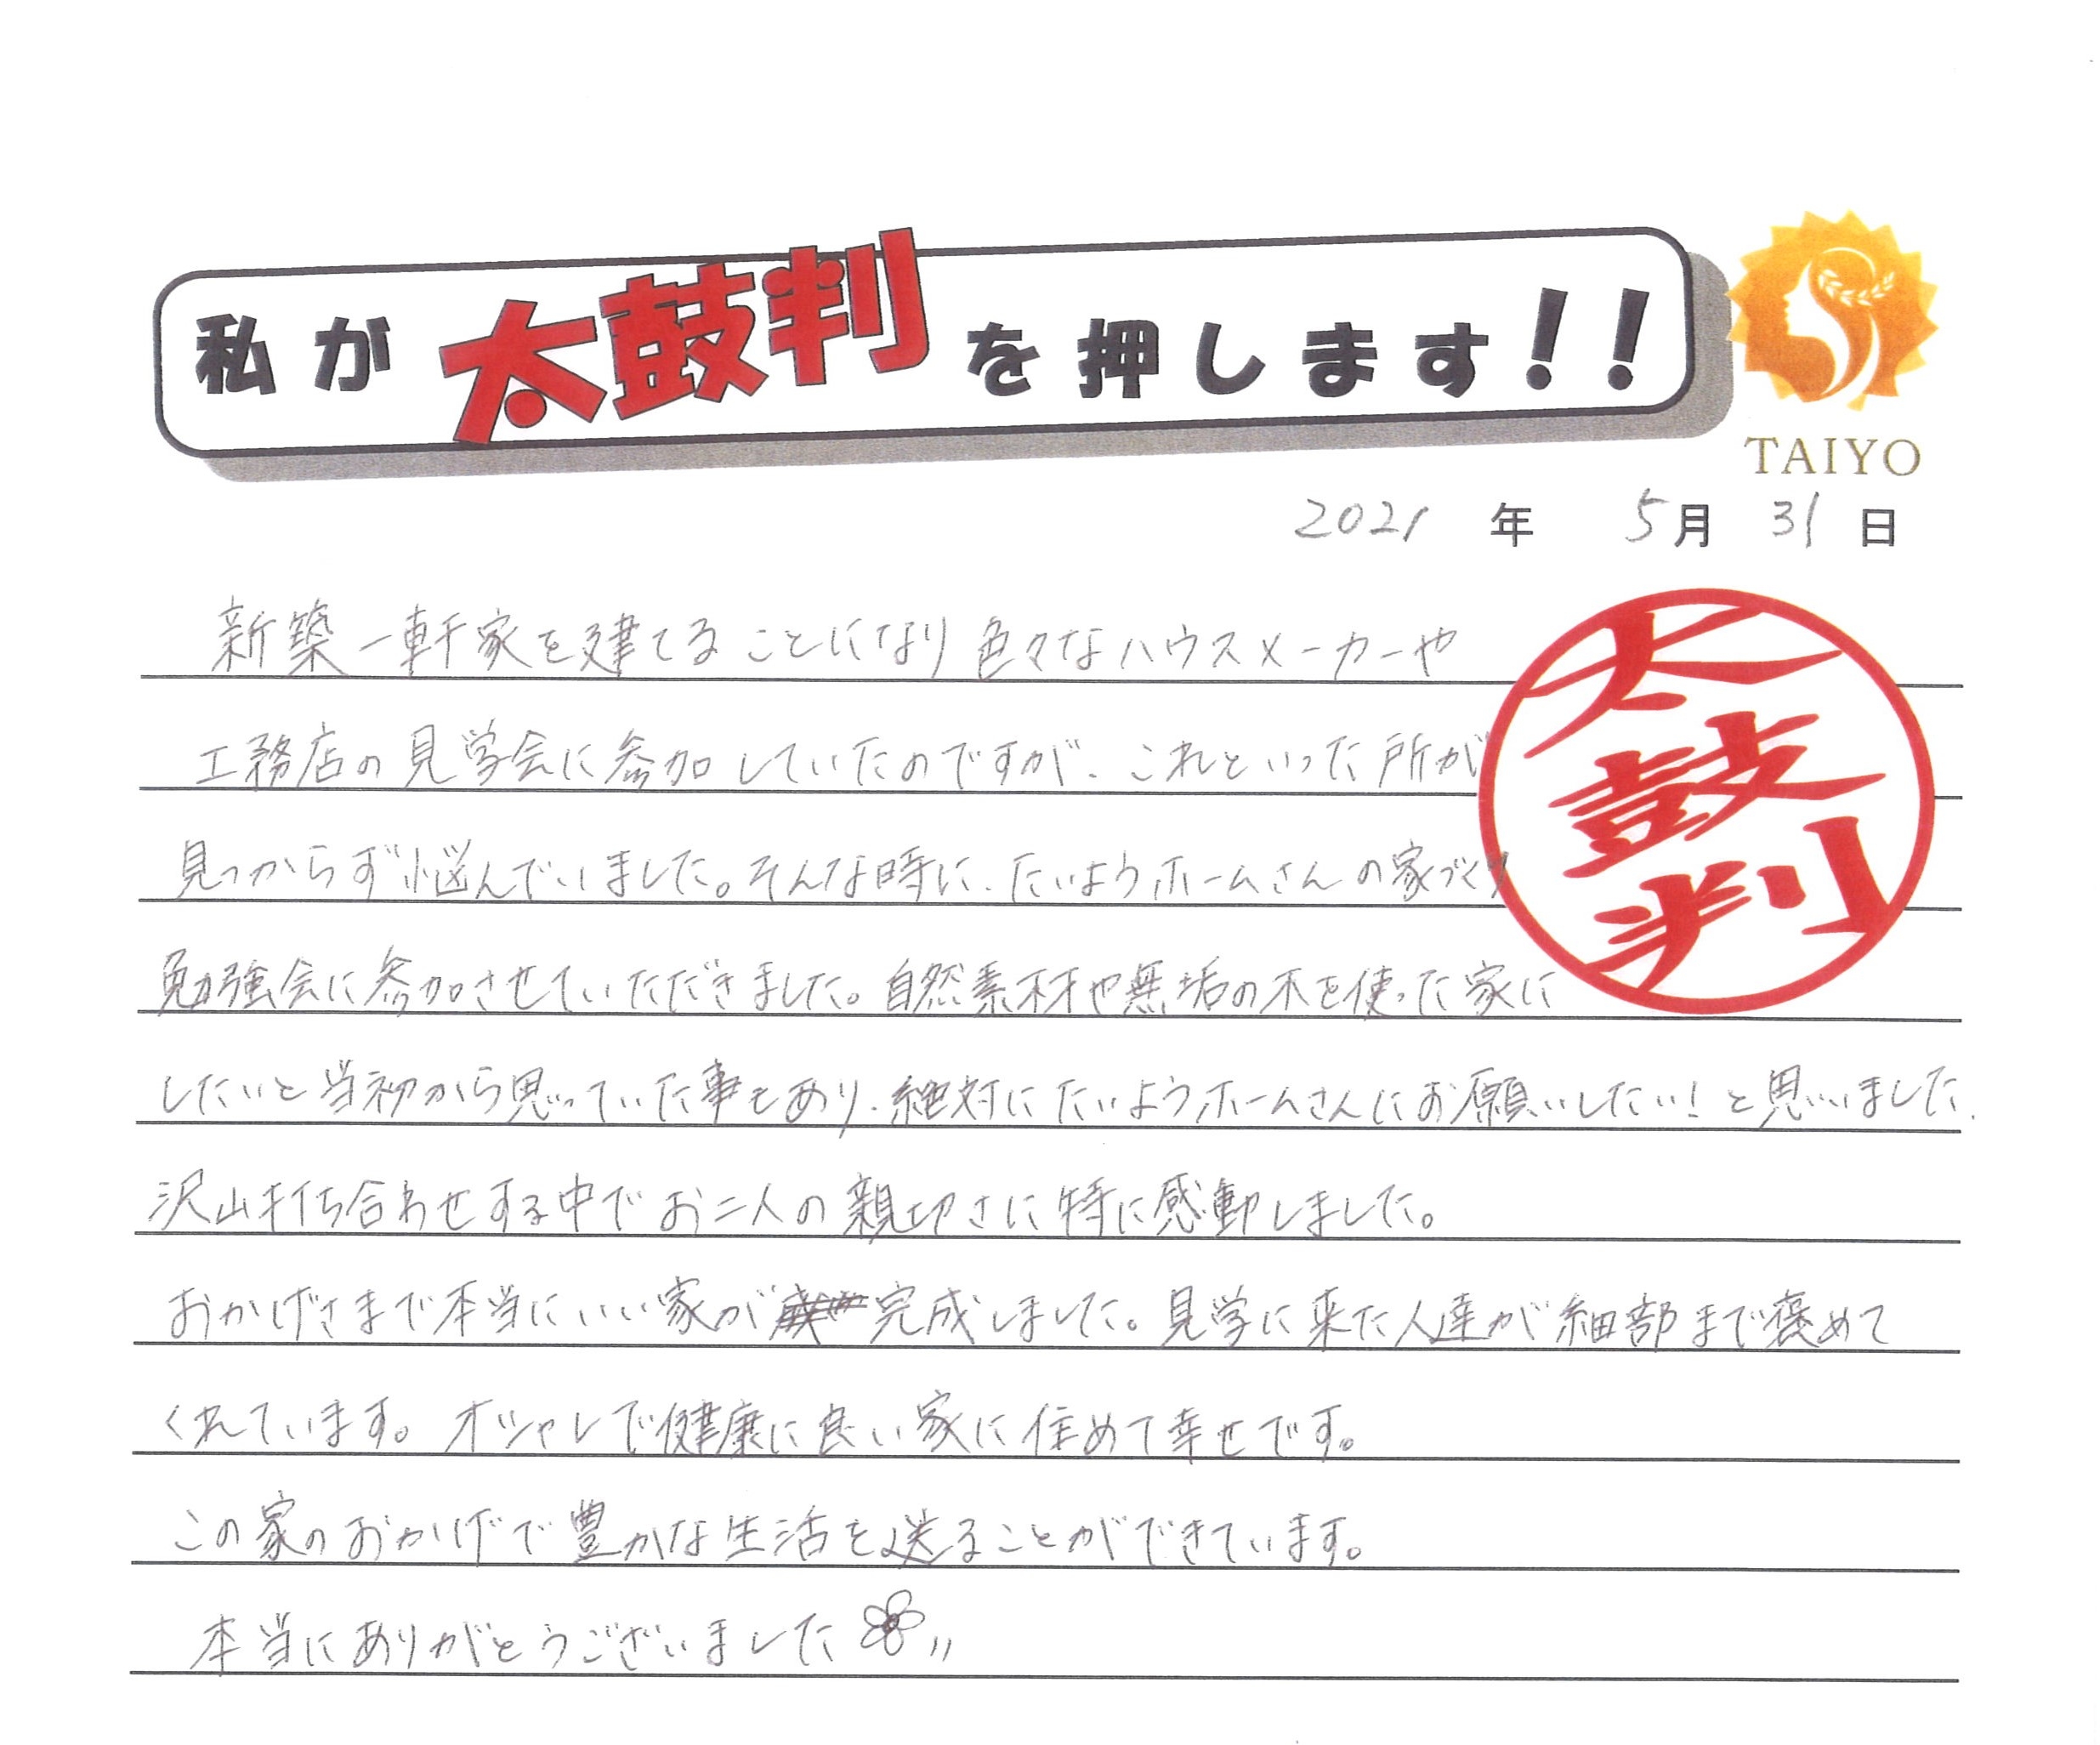 私が太鼓判を押します!!
TAIYO
2021年 5月 31日
太鼓判
新築一軒家を建てることになり色々なハウスメーカーや
工務店の見学会に参加していたのですが、これといった所が
見つからず悩んでいました。そんな時に、たいようホームさんの家づくり
勉強会に参加させていただきました。自然素材や無垢の木を使った家に
したいと当初から思っていた事もあり、絶対にたいようホームさんにお願いしたい!と思いました。
沢山打ち合わせする中でお二人の親切さに特に感動しました。
おかげさまで本当にいい家が完成しました。見学に来た人達が細部まで褒めて
くれています。オシャレで健康に良い家に住めて幸せです。
この家のおかげで豊かな生活を送ることができています。
本当にありがとうございました